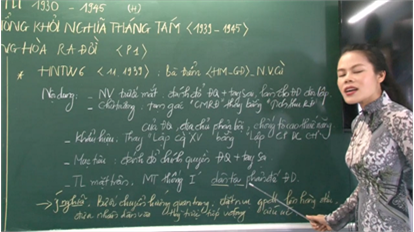 1930 - 1945 (H)
TỔNG KHỞI NGHĨA THÁNG TÁM <1939 - 1945>
NG HÒA RA ĐỜI <P1>
* HNTW6 < 11. 1939> : bà Điểm <HM-GĐ>. N.V.Cừ
Nội dung: NV trước mắt: đánh đổ ĐQ + tay sai, làm cho ĐD độc lập.
- Chủ trương: tạm gác "CMRĐ" thay bằng "Tịch thu RĐ"
của ĐQ, địa chủ phản bội, chống tô cao thuế nặng
- Khẩu hiệu: Thay "Lập CQ XV" bằng "Lập CP DC CH"
- Mục tiêu: đánh đổ chính quyền ĐQ + tay sai
- TL mặt trận: MT thống I dân tộc phản đế ĐD
→ Ý nghĩa: chuyển hướng quan trọng, đặt n.vụ hàng đầu
đưa nhân dân vào trực tiếp vận động cứu nước